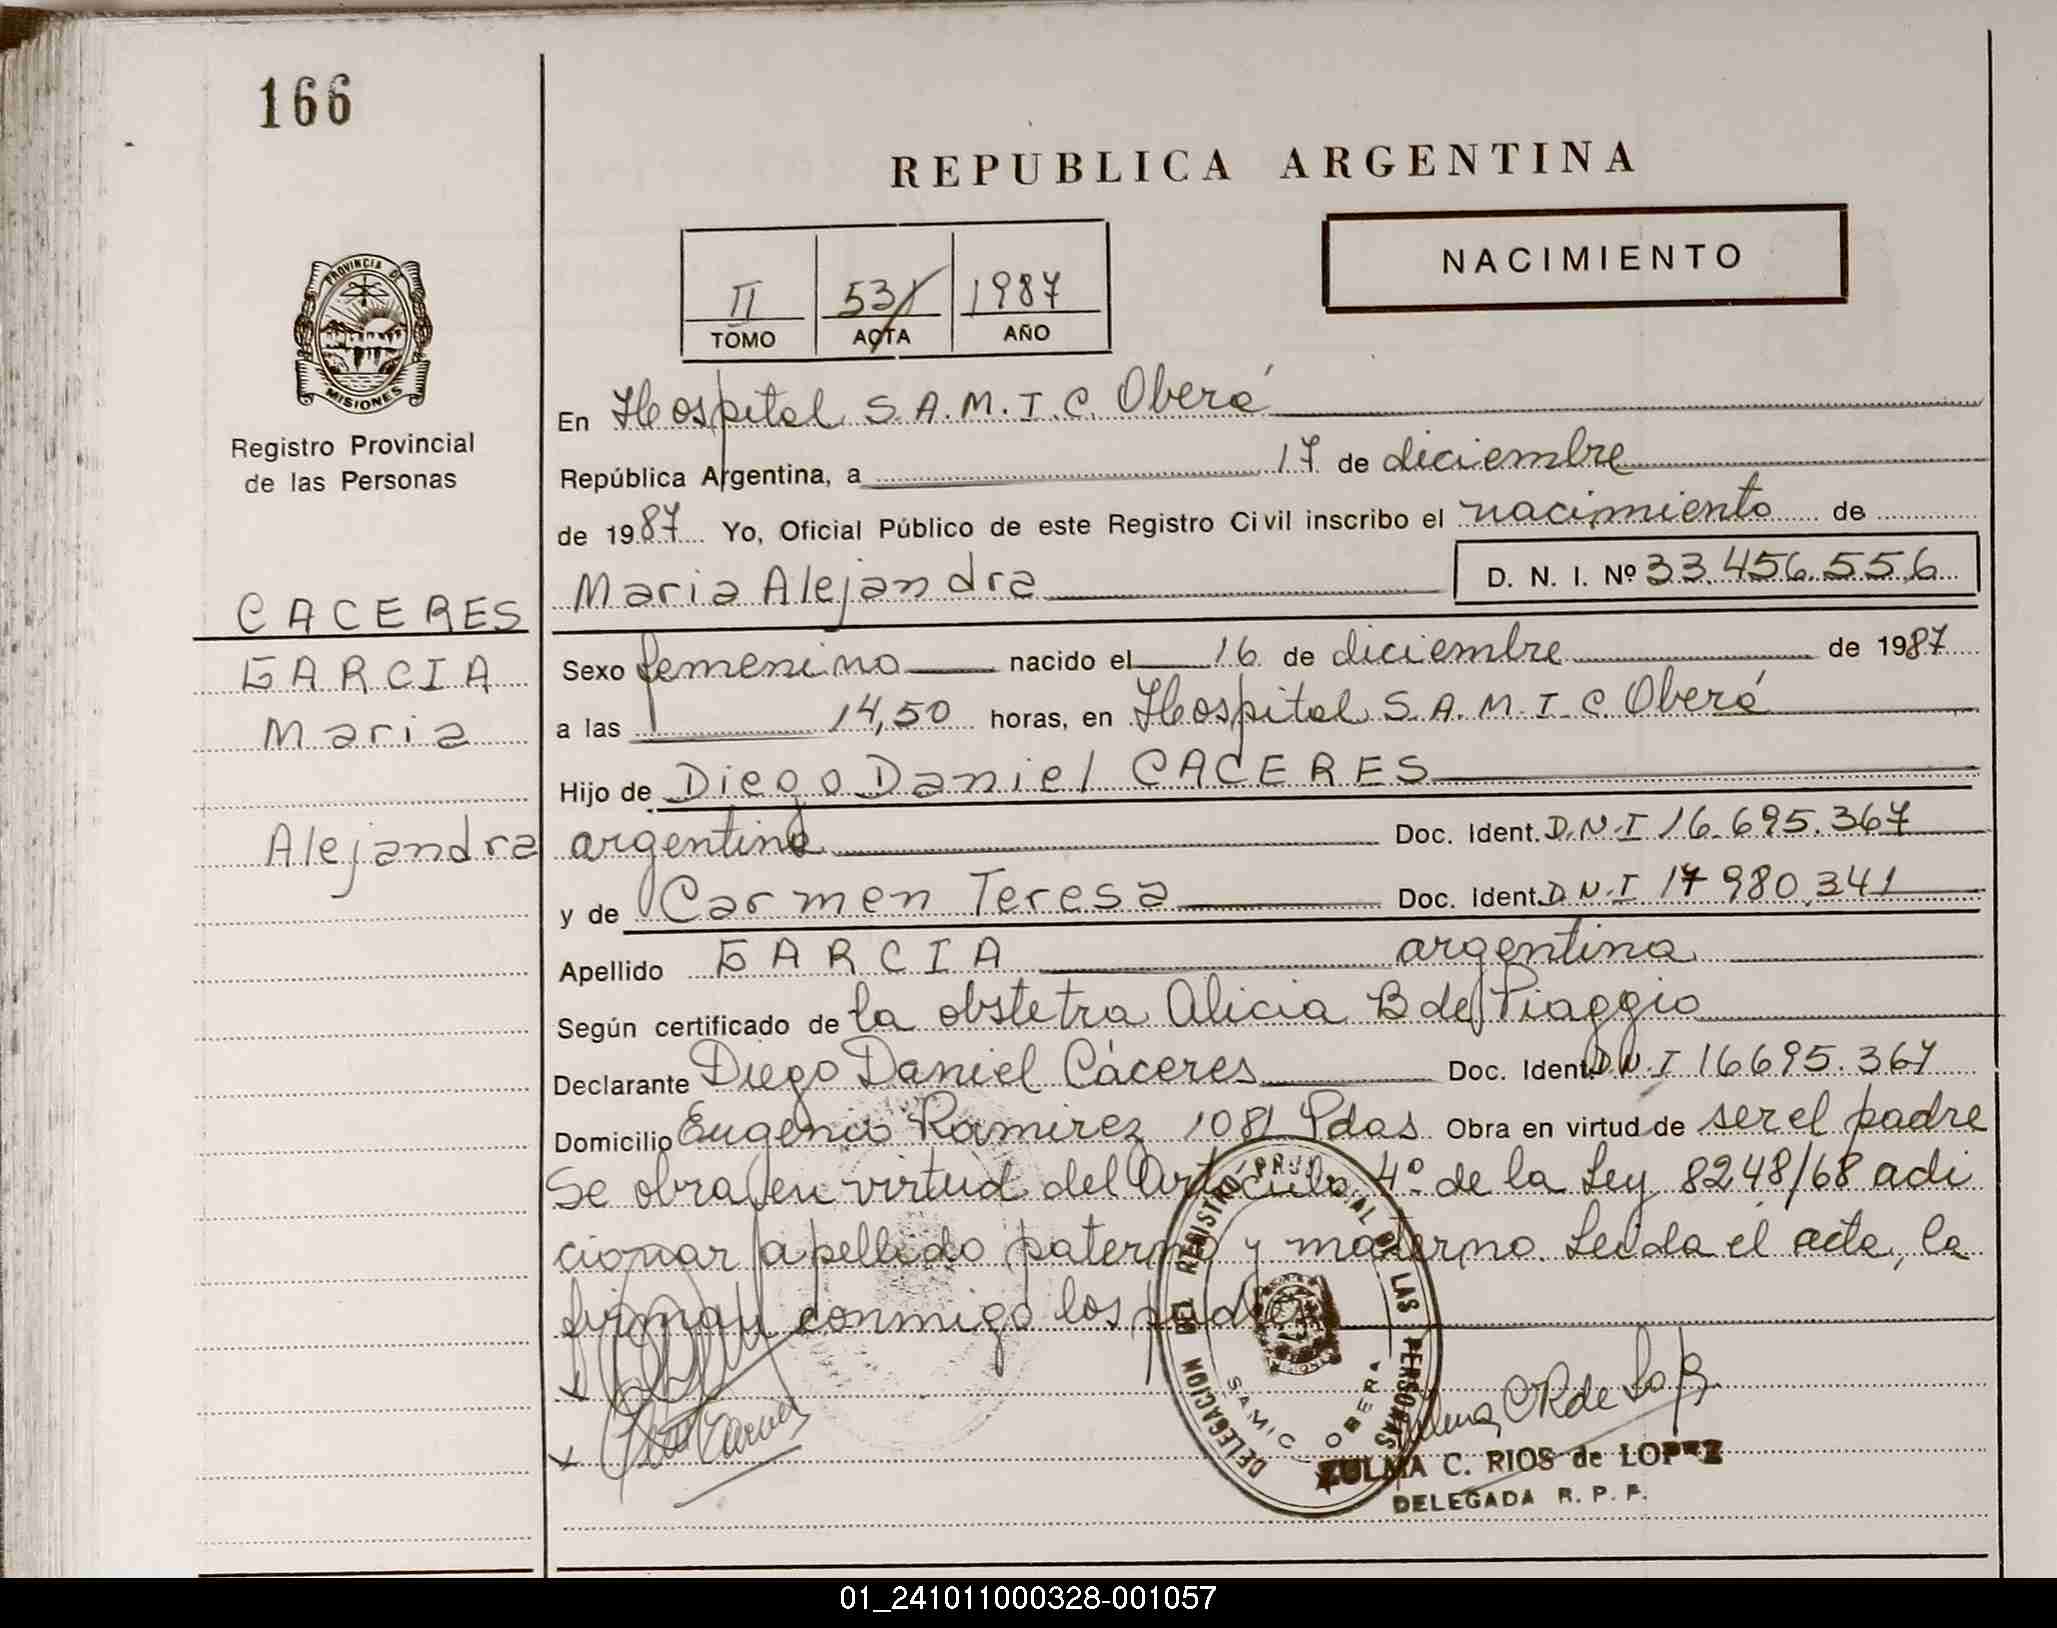 166
REPUBLICA ARGENTINA
NACIMIENTO
II 531 1987
TOMO ACTA AÑO
PROVINCIA DE
MISIONES
Registro Provincial
de las Personas
En Hospital S.A.M.I.C. Oberá
República Argentina, a 17 de diciembre
de 1987 Yo, Oficial Público de este Registro Civil inscribo el nacimiento de
Maria Alejandra D. N. I. Nº 33.456.556
CACERES
GARCIA
Maria
Alejandra
Sexo femenino nacido el 16 de diciembre de 1987
a las 14,50 horas, en Hospital S.A.M.I.C. Oberá
Hijo de Diego Daniel CACERES
argentino Doc. Ident. D.N.I 16.695.367
y de Carmen Teresa Doc. Ident. D.N.I 17 980.341
Apellido GARCIA argentina
Según certificado de la obstetra Alicia B de Piaggio
Declarante Diego Daniel Cáceres Doc. Ident. D.N.I 16695.367
Domicilio Eugenio Ramirez 1081 Pdas Obra en virtud de ser el padre
Se obra en virtud del Artículo 4º de la Ley 8248/68 adi
cionar apellido paterno y materno. Leida el acta, la
firman conmigo los padres
DELEGACION DEL REGISTRO PROVINCIAL DE LAS PERSONAS
SAMIC OBERA
ZULMA C. RIOS de LOPEZ
DELEGADA R. P. P.
01_241011000328-001057